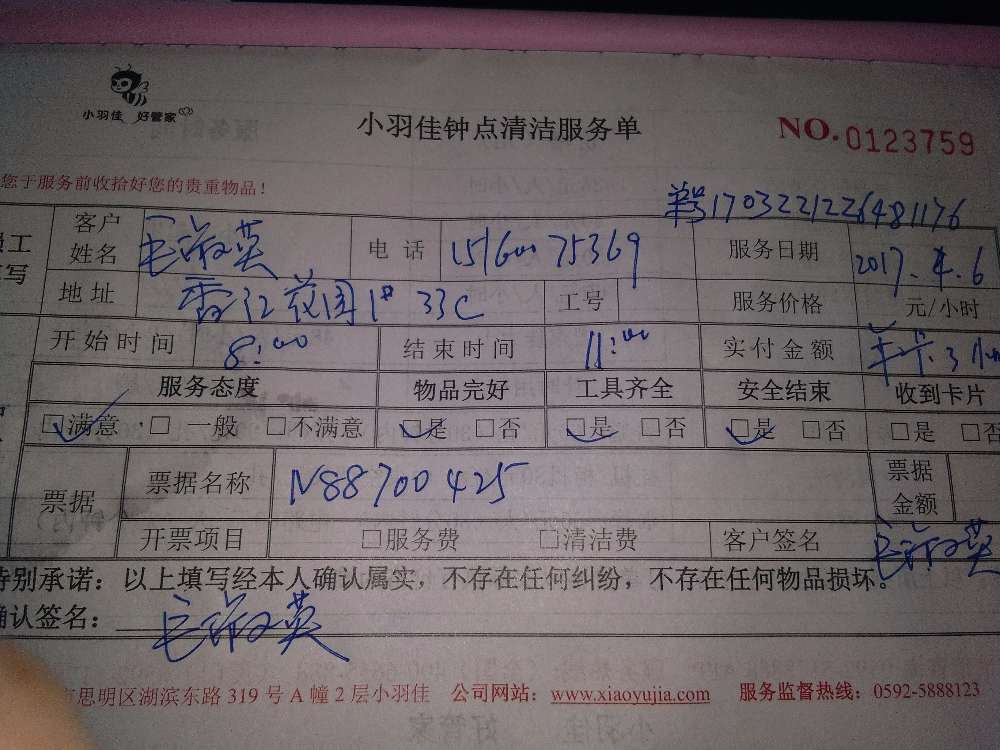 小羽佳 好管家
小羽佳钟点清洁服务单
NO.0123759
您于服务前收拾好您的贵重物品！
单号1703221226481176
客户姓名 电话 服务日期 2017.4.6
地址 香江花园1# 33C 工号 服务价格 元/小时
开始时间 8:00 结束时间 11:00 实付金额
服务态度 物品完好 工具齐全 安全结束 收到卡片
☑满意 □一般 □不满意 ☑是 □否 ☑是 □否 ☑是 □否 □是 □否
票据 票据名称 N88700425 票据金额
开票项目 □服务费 □清洁费 客户签名
特别承诺：以上填写经本人确认属实，不存在任何纠纷，不存在任何物品损坏。
确认签名：
思明区湖滨东路 319 号 A 幢 2 层小羽佳 公司网站：www.xiaoyujia.com 服务监督热线：0592-5888123